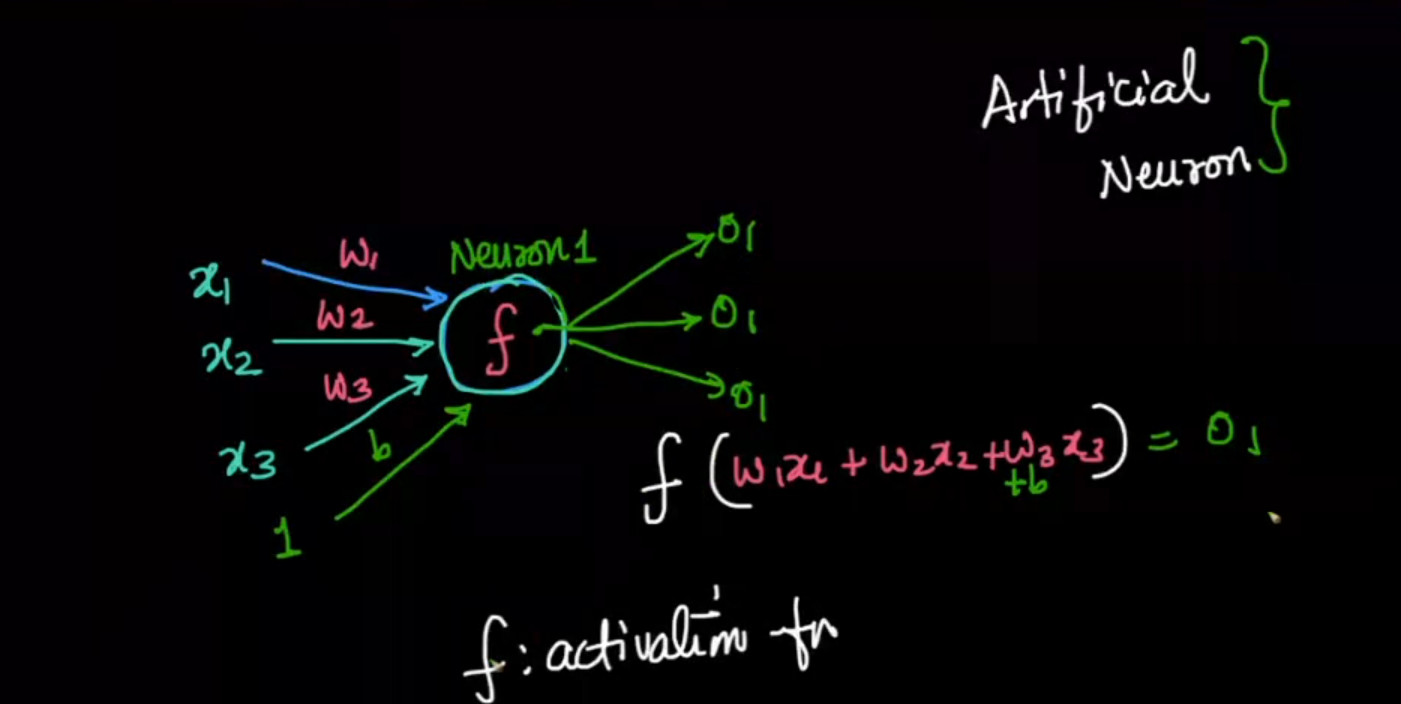 Artificial
Neuron
Neuron 1
x1 w1
x2 w2
x3 w3
1 b
f
O1
O1
O1
f(w1x1 + w2x2 + w3x3) = O1
+b
f: activation fn